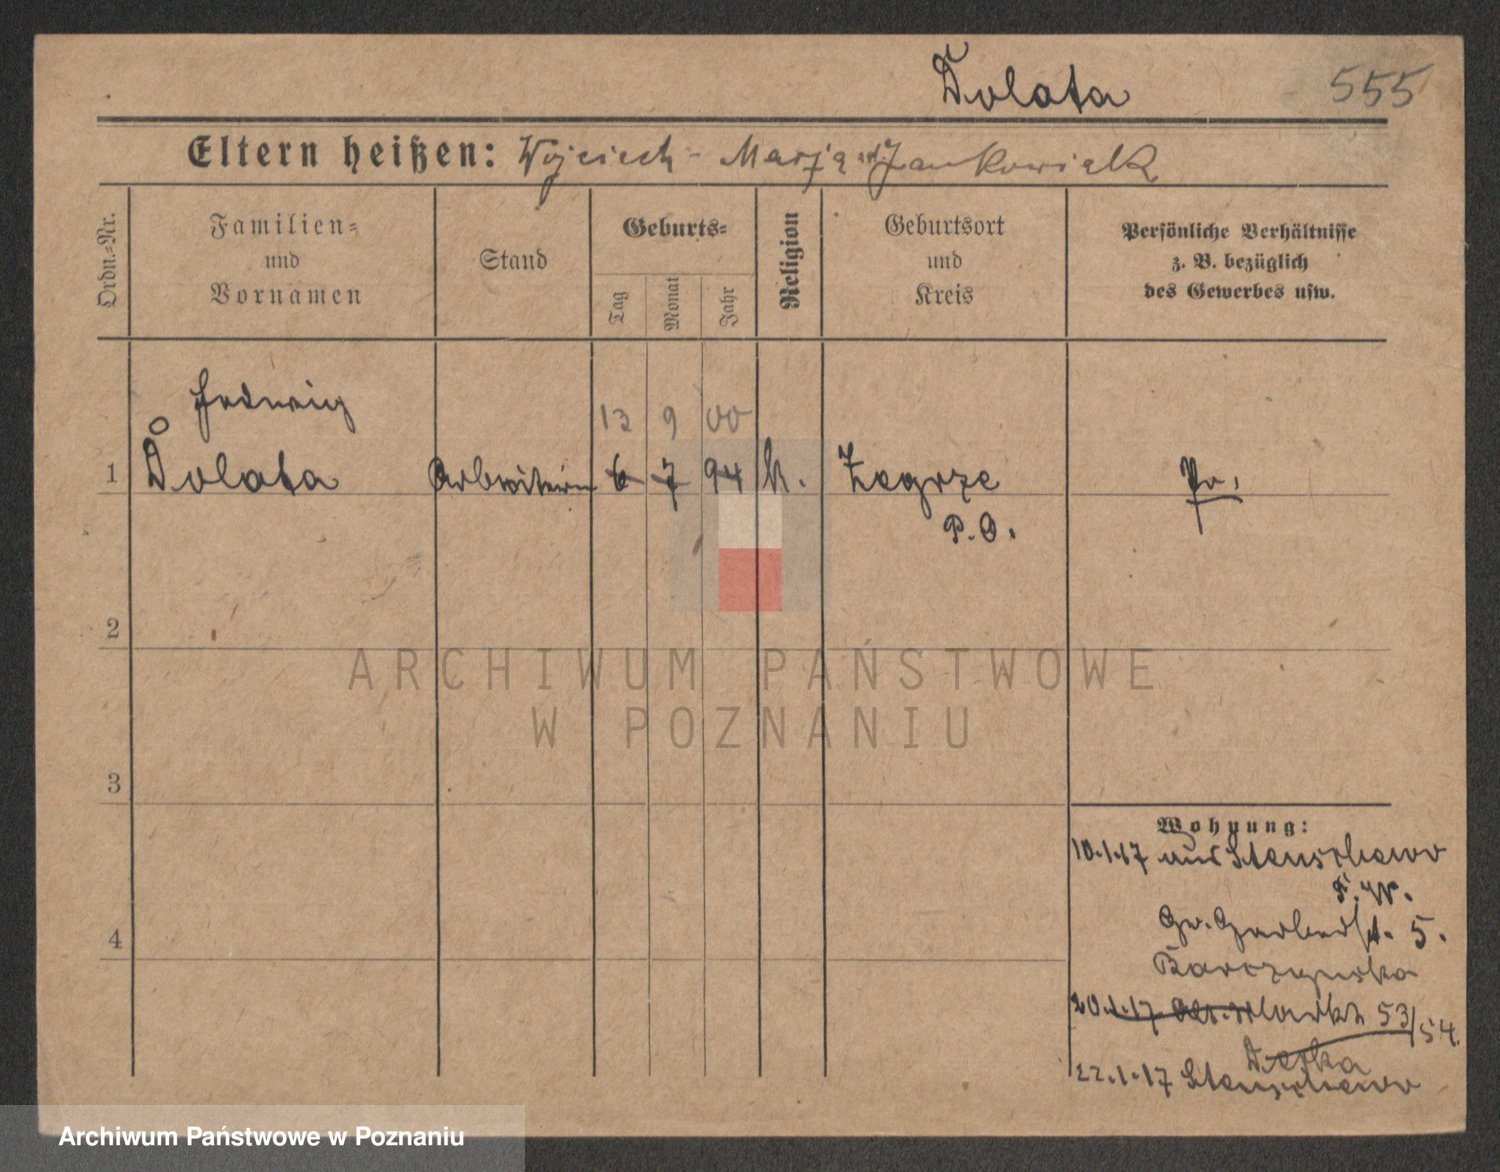 Dolata
555
Eltern heißen: Wojciech - Marja Jankowiak
Ordn.-Nr.
Familien-
und
Vornamen
Stand
Geburts-
Tag
Monat
Jahr
Religion
Geburtsort
und
Kreis
Persönliche Verhältnisse
z. B. bezüglich
des Gewerbes usw.
Hedwig
13 9 00
1 Dolata Arbeiterin 6 7 94 k. Zegrze Pr.
P. O.
2
ARCHIWUM PAŃSTWOWE
W POZNANIU
3
Wohnung:
10.1.17 aus Stenschewo
P. W.
Gr. Gerberst. 5.
20.1.17 Alt. Markt 53/54.
22.1.17 Stenschewo
4
Archiwum Państwowe w Poznaniu